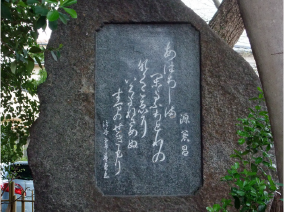 源兼昌
あはぢ嶋
かよふちとりの
なくこゑに
いく夜ねさめぬ
すまのせきもり